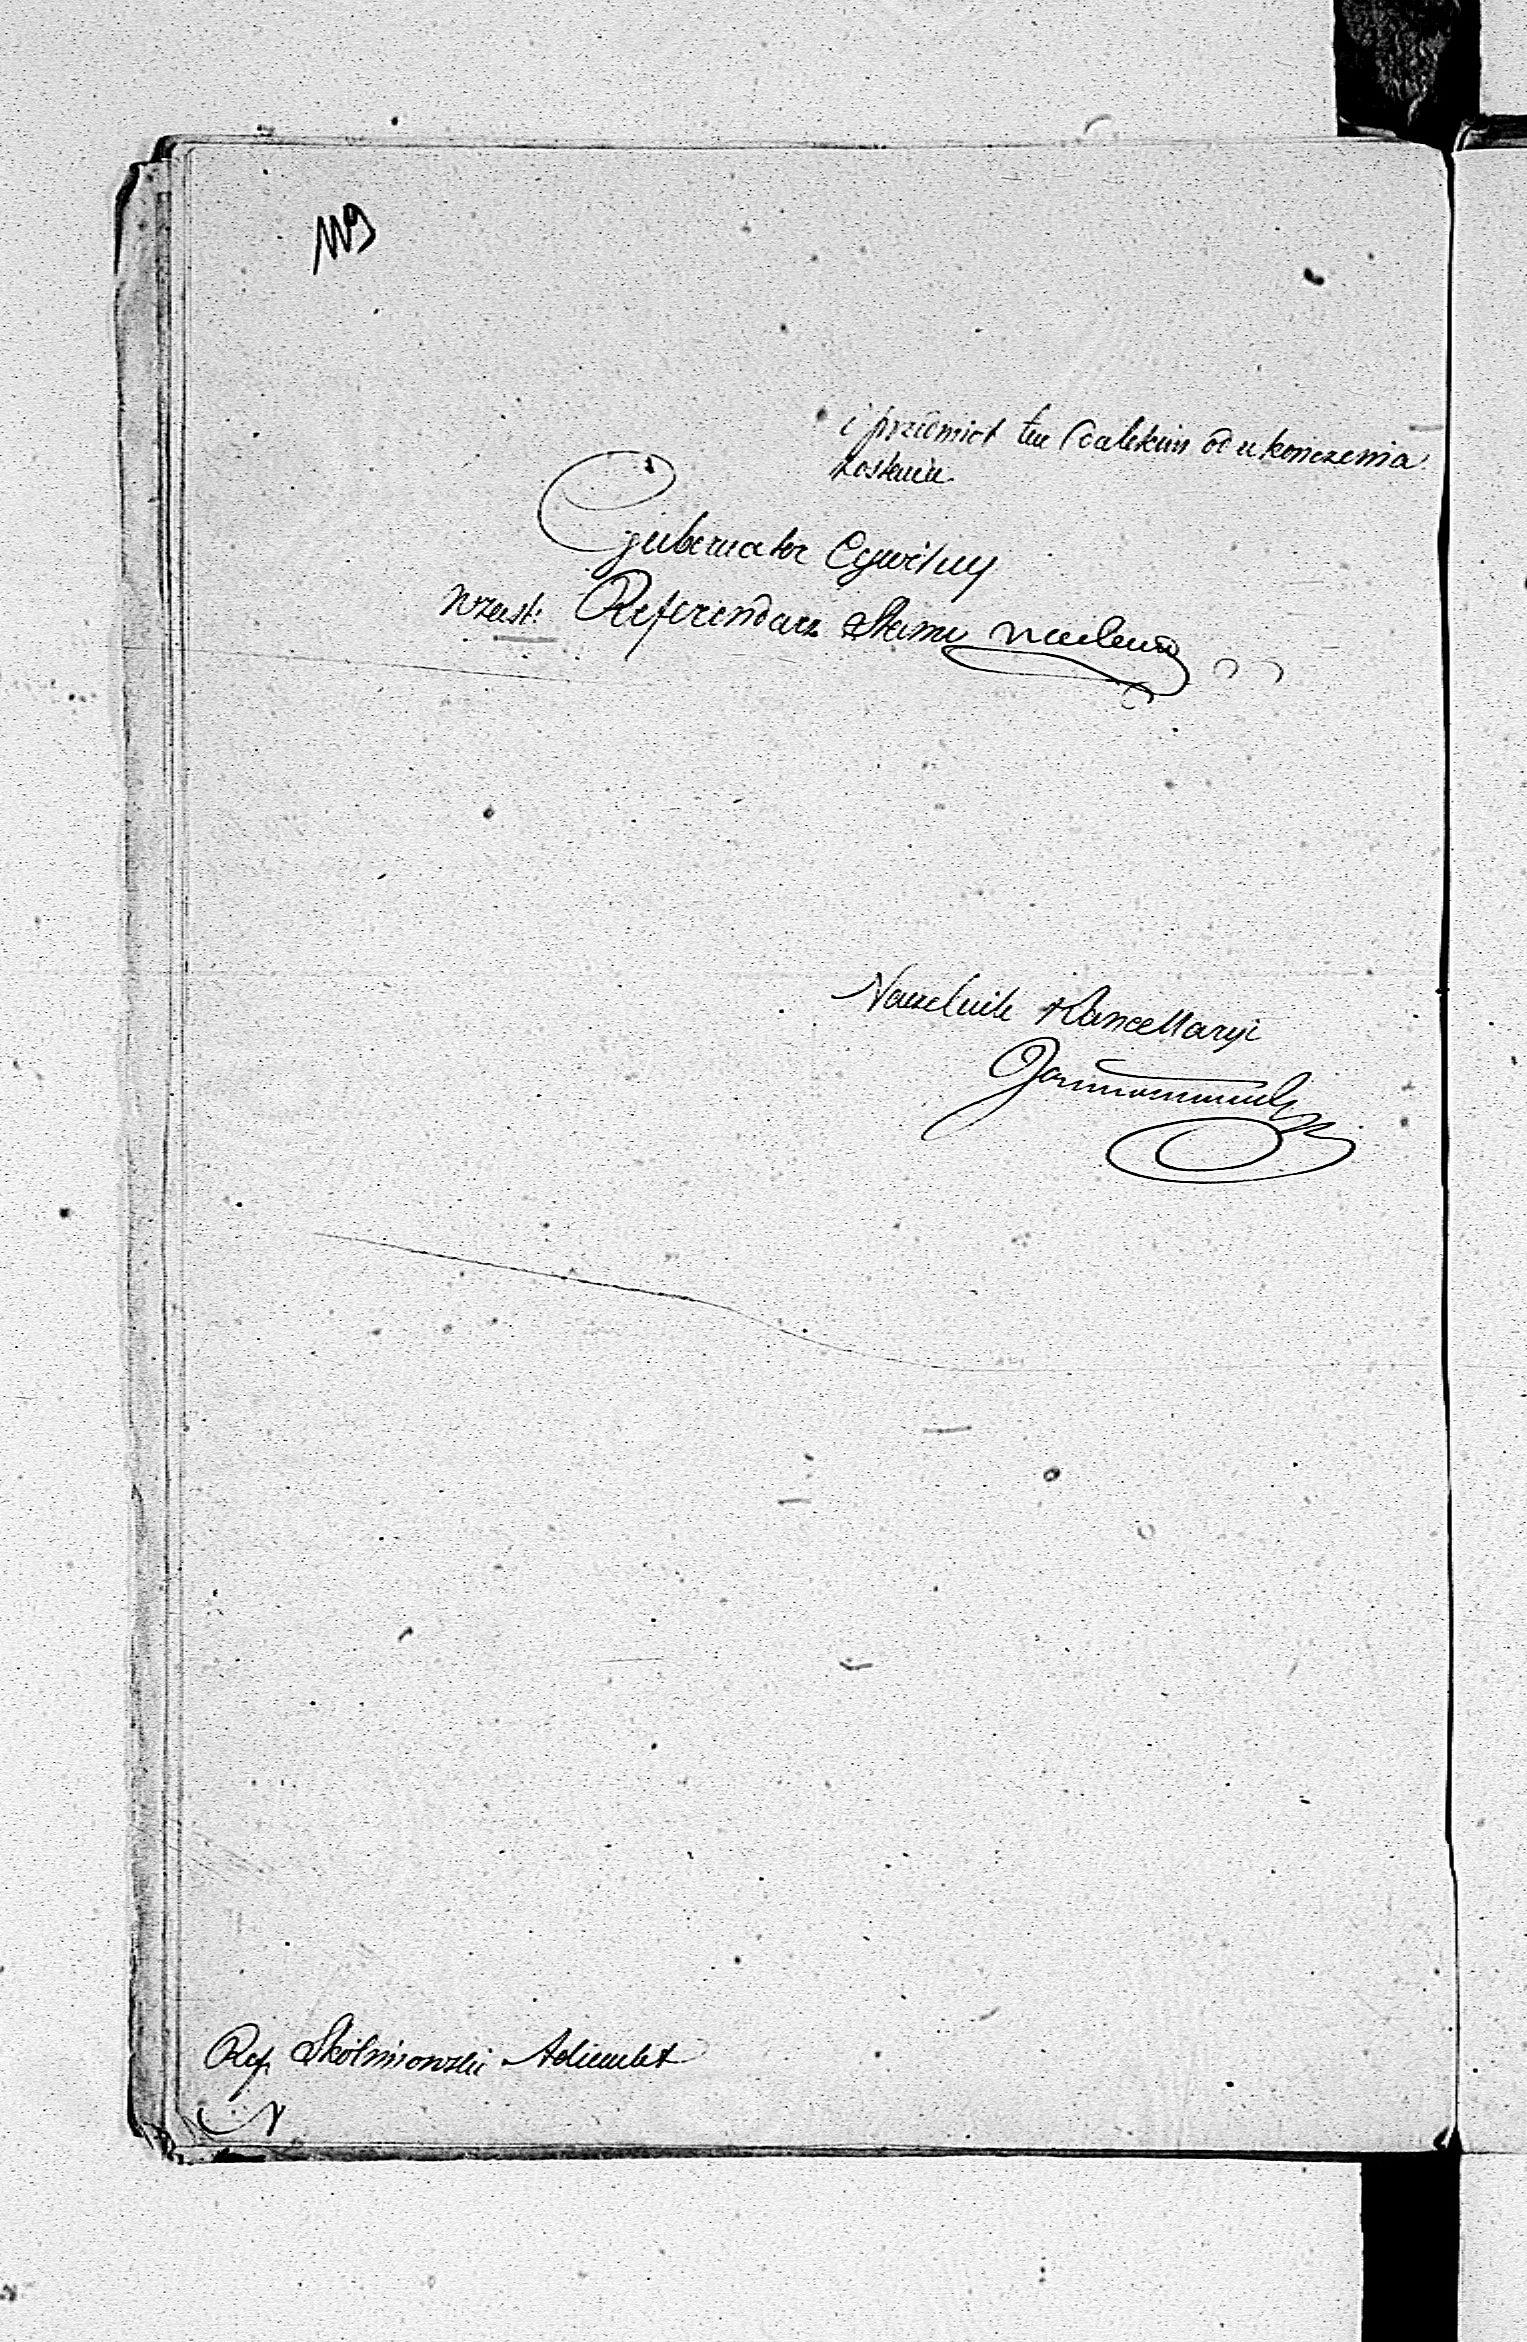 119
i przedmiot ten dalekim od ukończenia
zostaie.
Gubernator Cywilny
w zast: Referendarz Stanu
Naczelnik Kancellaryi
Ref. Skolmowski Adiunkt